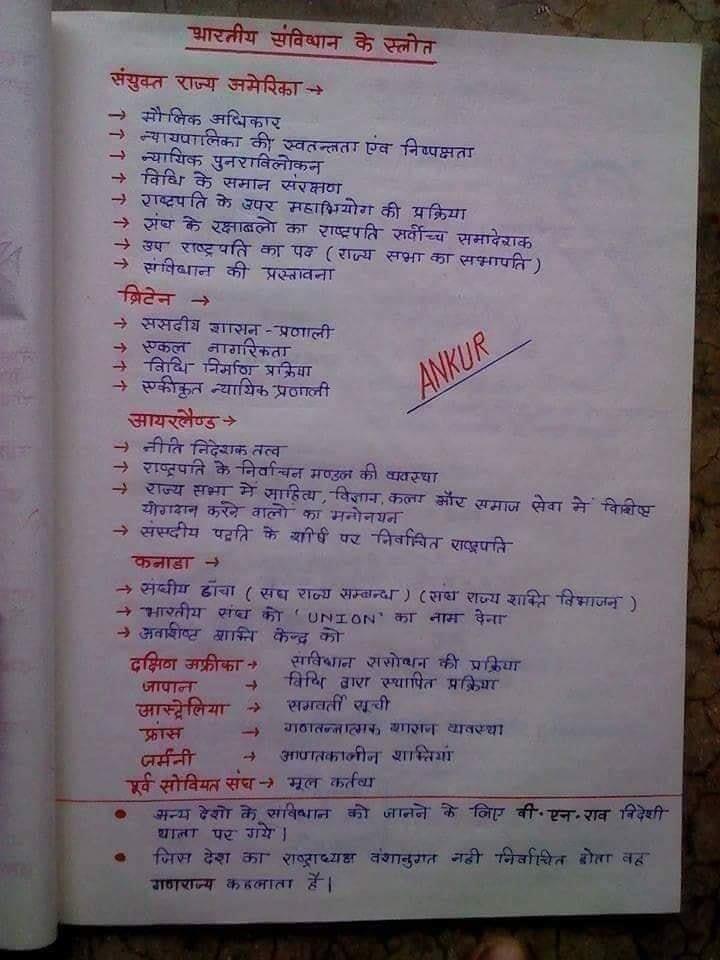 भारतीय संविधान के स्त्रोत
संयुक्त राज्य अमेरिका →
→ मौलिक अधिकार
→ न्यायपालिका की स्वतन्त्रता एंव निष्पक्षता
→ न्यायिक पुनराविलोकन
→ विधि के समान संरक्षण
→ राष्ट्रपति के उपर महाभियोग की प्रक्रिया
→ संघ के रक्षाबलो का राष्ट्रपति सर्वोच्च समादेशक
→ उप राष्ट्रपति का पद (राज्य सभा का सभापति)
→ संविधान की प्रस्तावना
ब्रिटेन →
→ ससदीय शासन-प्रणाली
→ एकल नागरिकता
→ विधि निर्माण प्रक्रिया
→ एकीकृत न्यायिक प्रणाली
ANKUR
आयरलैण्ड →
→ नीति निदेशक तत्व
→ राष्ट्रपति के निर्वाचन मण्डल की व्यवस्था
→ राज्य सभा मे साहित्य, विज्ञान, कला और समाज सेवा मे विशिष्ट
योगदान करने वालो का मनोनयन
→ संसदीय पद्दति के शीर्ष पर निर्वाचित राष्ट्रपति
कनाडा →
→ संघीय ढाँचा (संघ राज्य सम्बन्ध) (संघ राज्य शक्ति विभाजन)
→ भारतीय संघ को 'UNION' का नाम देना
→ अवशिष्ट शक्ति केन्द्र को
दक्षिण अफ्रीका → सविधान ससोधन की प्रक्रिया
जापान → विधि द्वारा स्थापित प्रक्रिया
आस्ट्रेलिया → समवर्ती सूची
फ्रांस → गणतन्त्रात्मक शासन व्यवस्था
जर्मनी → आपातकालीन शक्तियां
पूर्व सोवियत संघ → मूल कर्तव्य
• अन्य देशो के सविधान को जानने के लिए बी.एन.राव विदेशी
यात्रा पर गये।
• जिस देश का राष्ट्राध्यक्ष वंशानुगत नही निर्वाचित होता वह
गणराज्य कहलाता है।